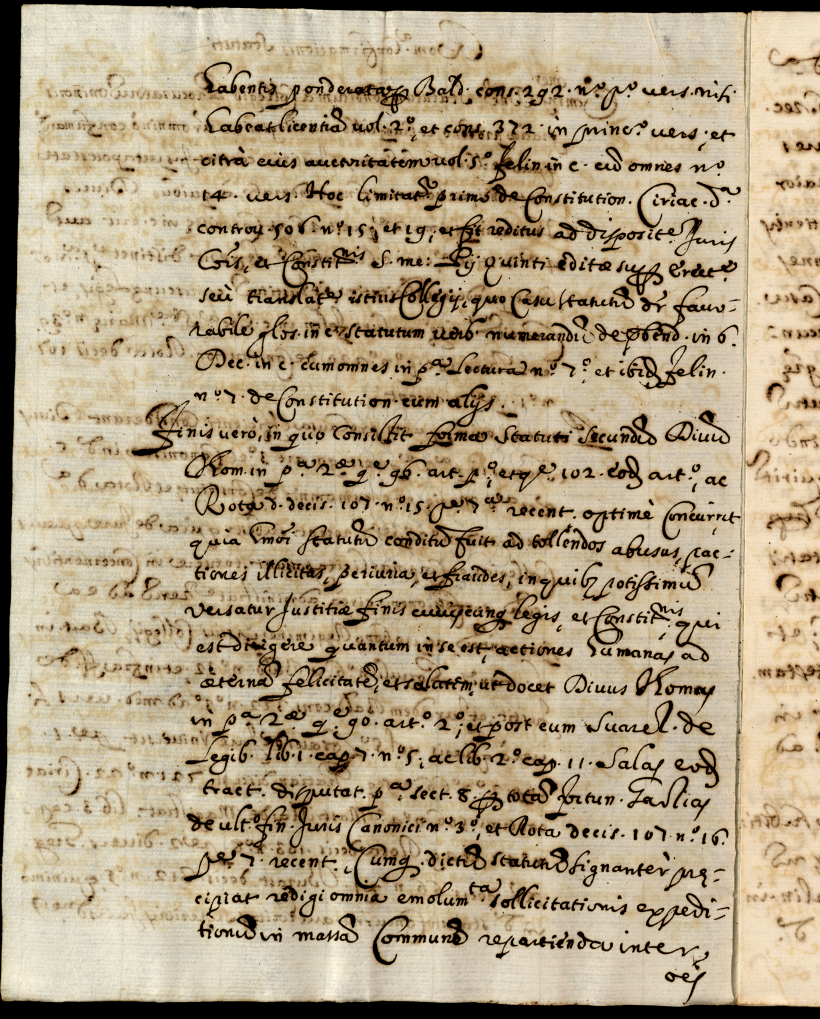 habentis ponderata Bald. cons. 292. nº. pº. vers. nisi
habeat licentiã vol. 2º. et cons. 372. in princº. vers. et
citrà eius auctoritatem vol. 5º. felin in c. eccl. omnes nº
14. vers. Hoc limitat primò de Constitution. Ciriac. dª
controv. 506. nº. 15. et 19. et fit reditus ad disposite Juris
Cõis, et Constitnis S. me: Pij Quinti editæ sup erecte
seù translate istius Collegij, quo Casu statutũ dr favo-
rabile glos. in c. statutum verb. numerandũ de pbend. in 6.
Dec. in c. cum omnes in pª. Lectura nº. 7º. et ibid felin.
nº 7. de Constitution. cum alijs.
Finis verò, in quo Consistit forma Statuti secundũ Diuũ
Thom. in pª. 2æ. qe. 96. art. pº. et qe. 102. eod art.º, ac
Rota d. decis. 107. nº. 15. pe. 7. recent. optimè Concurrit
quia hmõi statutũ conditũ fuit ad tollendos abusus, pac-
tiones illicitas, periuria, et fraudes, in quibz potissimũ
versatur Justitiæ finis cuiuscunq legis, et Constitnis, qui
est dirigere quantum in se est, actiones humanas ad
æternã felicitatẽ, et salutem, ut docet Divus Thomas
in pª. 2æ qe. 90. art.º 2º. et post eum Suarez. de
Legib. lib. 1. cap. 7. nº. 5. ac lib. 2º. cap. 11. Salas eod
tract. disputat. pª. sect. 8. p totã fortun. Garsias
de ult.º fin. Juris Canonici nº. 3º, et Rota decis. 107. nº. 16.
pe. 7. recent. Cumq. dictũ statutũ signanter prę-
cipiat redigi omnia emolumta sollicitationis expedi-
tionũ in massã Communẽ repartienda inter
oẽs